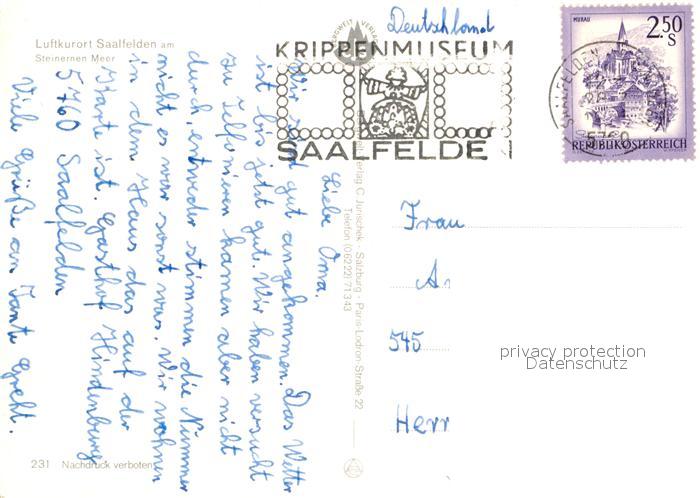 Luftkurort Saalfelden am
Steinernen Meer
Deutschland
KRIPPENMUSEUM
SAALFELDEN
MURAU
2.50
S
REPUBLIK ÖSTERREICH
5760
Liebe Oma.
Wir sind gut angekommen. Das Wetter
ist bis jetzt gut. Wir haben versucht
zu Telfonieren kamen aber nicht
durch, entweder stimmen die Nummer
nicht es war sonst was. Wir wohnen
in dem Haus das auf der
Karte ist. Gasthof Hindenburg
5760 Saalfelden
Viele Grüße an Tante Greht.
Verlag C. Jurischek - Salzburg - Paris-Lodron-Straße 22
Telefon (06222) 71343
Frau
A
545
Herr
privacy protection
Datenschutz
231 Nachdruck verboten